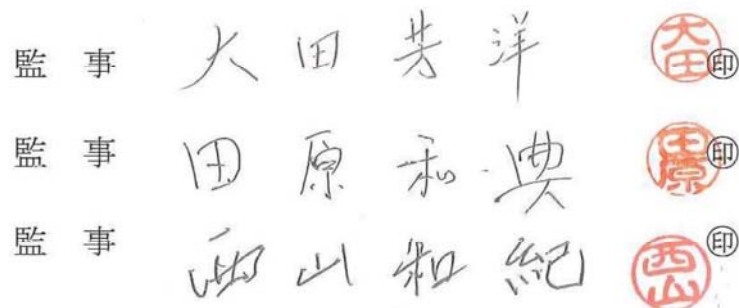 監 事 大 田 芳 洋 大田 ㊞
監 事 田 原 和 典 田原 ㊞
監 事 西 山 和 紀 西山 ㊞